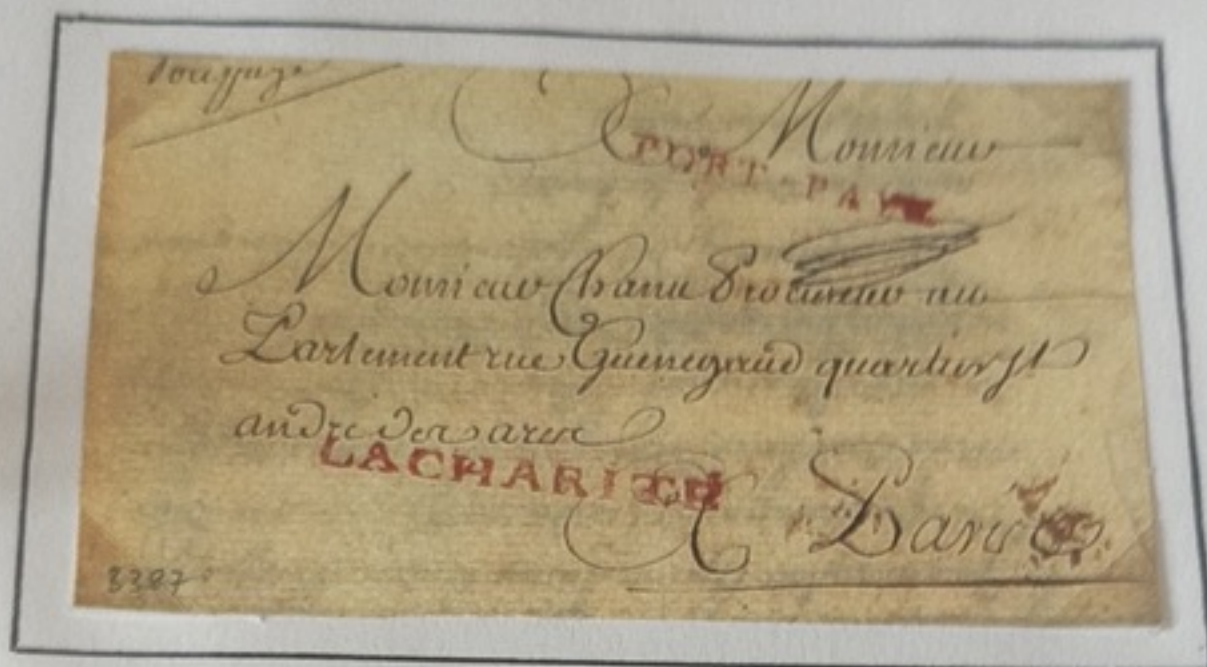 Monsieur
PORT PAYE
Monsieur Chanu Procureur au
Parlement rue Guenegaud quartier St
andre des arcs
LACHARITÉ
Paris
8387